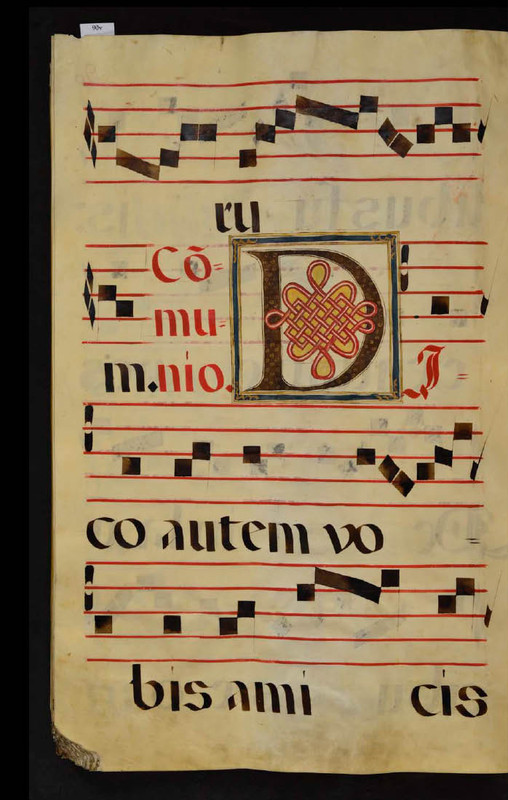 90v
ru
Cō=
mu=
m.nio. DI=
co autem vo
bis ami cis